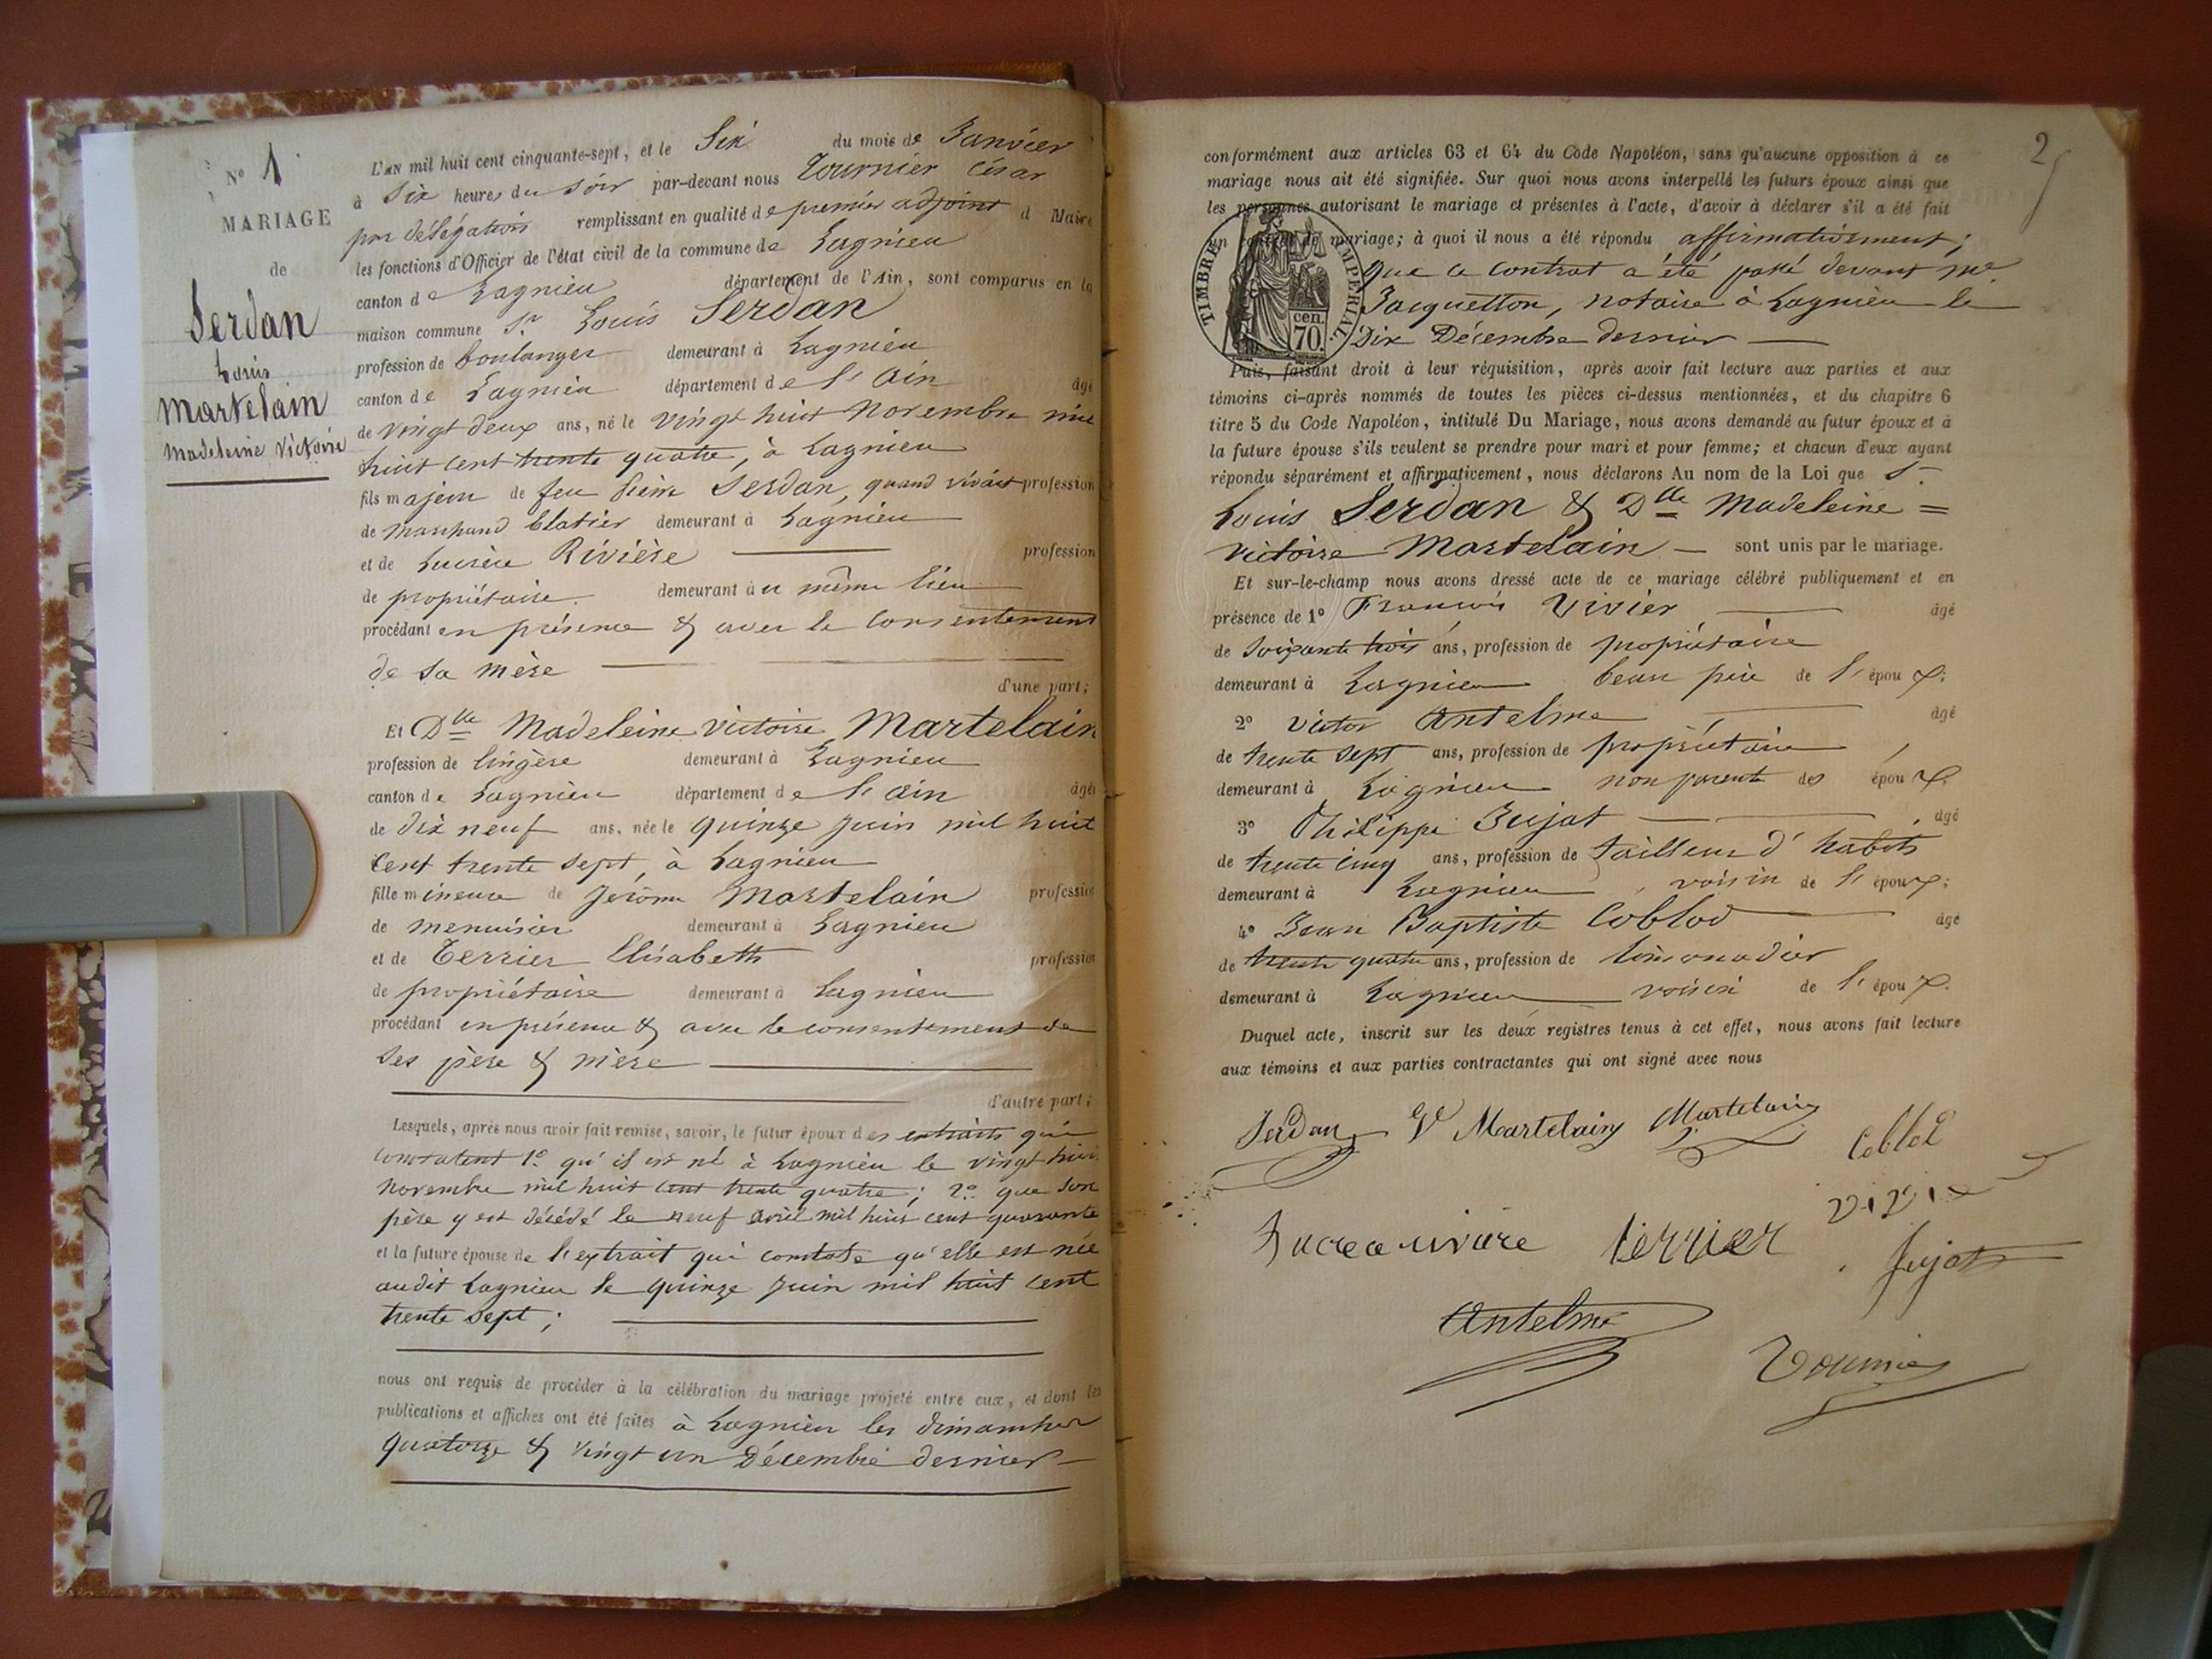 N° 1
MARIAGE
de
Serdan
Louis
Martelain
Madeleine Victoire
L'AN mil huit cent cinquante-sept, et le Six du mois de Janvier
à Six heures du soir par-devant nous Tournier César
par délégation remplissant en qualité de premier adjoint d Maire
les fonctions d'Officier de l'état civil de la commune de Lagnieu
canton de Lagnieu département de l'Ain, sont comparus en la
maison commune Sr Louis Serdan
profession de boulanger demeurant à Lagnieu
canton de Lagnieu département de l'Ain âgé
de vingt deux ans, né le vingt huit Novembre mil
huit cent trente quatre, à Lagnieu
fils majeur de feu Pierre Serdan, quand vivait profession
de marchand blatier demeurant à Lagnieu
et de Lucrèce Rivière profession
de propriétaire demeurant à u même lieu
procédant en présence & avec le consentement
de sa mère
d'une part;
Et Dlle Madeleine Victoire Martelain
profession de lingère demeurant à Lagnieu
canton de Lagnieu département de l'Ain âgée
de dix neuf ans, née le quinze juin mil huit
cent trente sept, à Lagnieu
fille mineure de Jérôme Martelain profession
de menuisier demeurant à Lagnieu
et de Terrier Elisabeth profession
de propriétaire demeurant à Lagnieu
procédant en présence & avec le consentement de
ses père & mère
d'autre part;
Lesquels, après nous avoir fait remise, savoir, le futur époux des extraits qui
constatent 1° qu'il est né à Lagnieu le vingt huit
novembre mil huit cent trente quatre; 2° que son
père y est décédé le neuf avril mil huit cent quarante
et la future épouse de l'extrait qui constate qu'elle est née
audit Lagnieu le quinze juin mil huit cent
trente sept;
nous ont requis de procéder à la célébration du mariage projeté entre eux, et dont les
publications et affiches ont été faites à Lagnieu les dimanches
quatorze & vingt un Décembre dernier
2
conformément aux articles 63 et 64 du Code Napoléon, sans qu'aucune opposition à ce
mariage nous ait été signifiée. Sur quoi nous avons interpellé les futurs époux ainsi que
les personnes autorisant le mariage et présentes à l'acte, d'avoir à déclarer s'il a été fait
un contrat de mariage; à quoi il nous a été répondu affirmativement;
que ce contrat a été passé devant Me
Jacquetton, notaire à Lagnieu le
Dix Décembre dernier
TIMBRE IMPÉRIAL
70 cen.
Puis, faisant droit à leur réquisition, après avoir fait lecture aux parties et aux
témoins ci-après nommés de toutes les pièces ci-dessus mentionnées, et du chapitre 6
titre 5 du Code Napoléon, intitulé Du Mariage, nous avons demandé au futur époux et à
la future épouse s'ils veulent se prendre pour mari et pour femme; et chacun d'eux ayant
répondu séparément et affirmativement, nous déclarons Au nom de la Loi que Sr
Louis Serdan & Dlle Madeleine =
Victoire Martelain — sont unis par le mariage.
Et sur-le-champ nous avons dressé acte de ce mariage célébré publiquement et en
présence de 1° François Vivier âgé
de soixante trois ans, profession de propriétaire
demeurant à Lagnieu beau père de l'époux;
2° Victor Antelme âgé
de trente sept ans, profession de propriétaire,
demeurant à Lagnieu non parent des époux
3° Philippe Bujat âgé
de trente cinq ans, profession de tailleur d'habits
demeurant à Lagnieu, voisin de l'époux;
4° Jean Baptiste Coblod âgé
de trente quatre ans, profession de limonadier
demeurant à Lagnieu voisin de l'époux.
Duquel acte, inscrit sur les deux registres tenus à cet effet, nous avons fait lecture
aux témoins et aux parties contractantes qui ont signé avec nous
Serdan Ve Martelain Martelain Coblod
Vivier
terrier
Antelme
Tournier